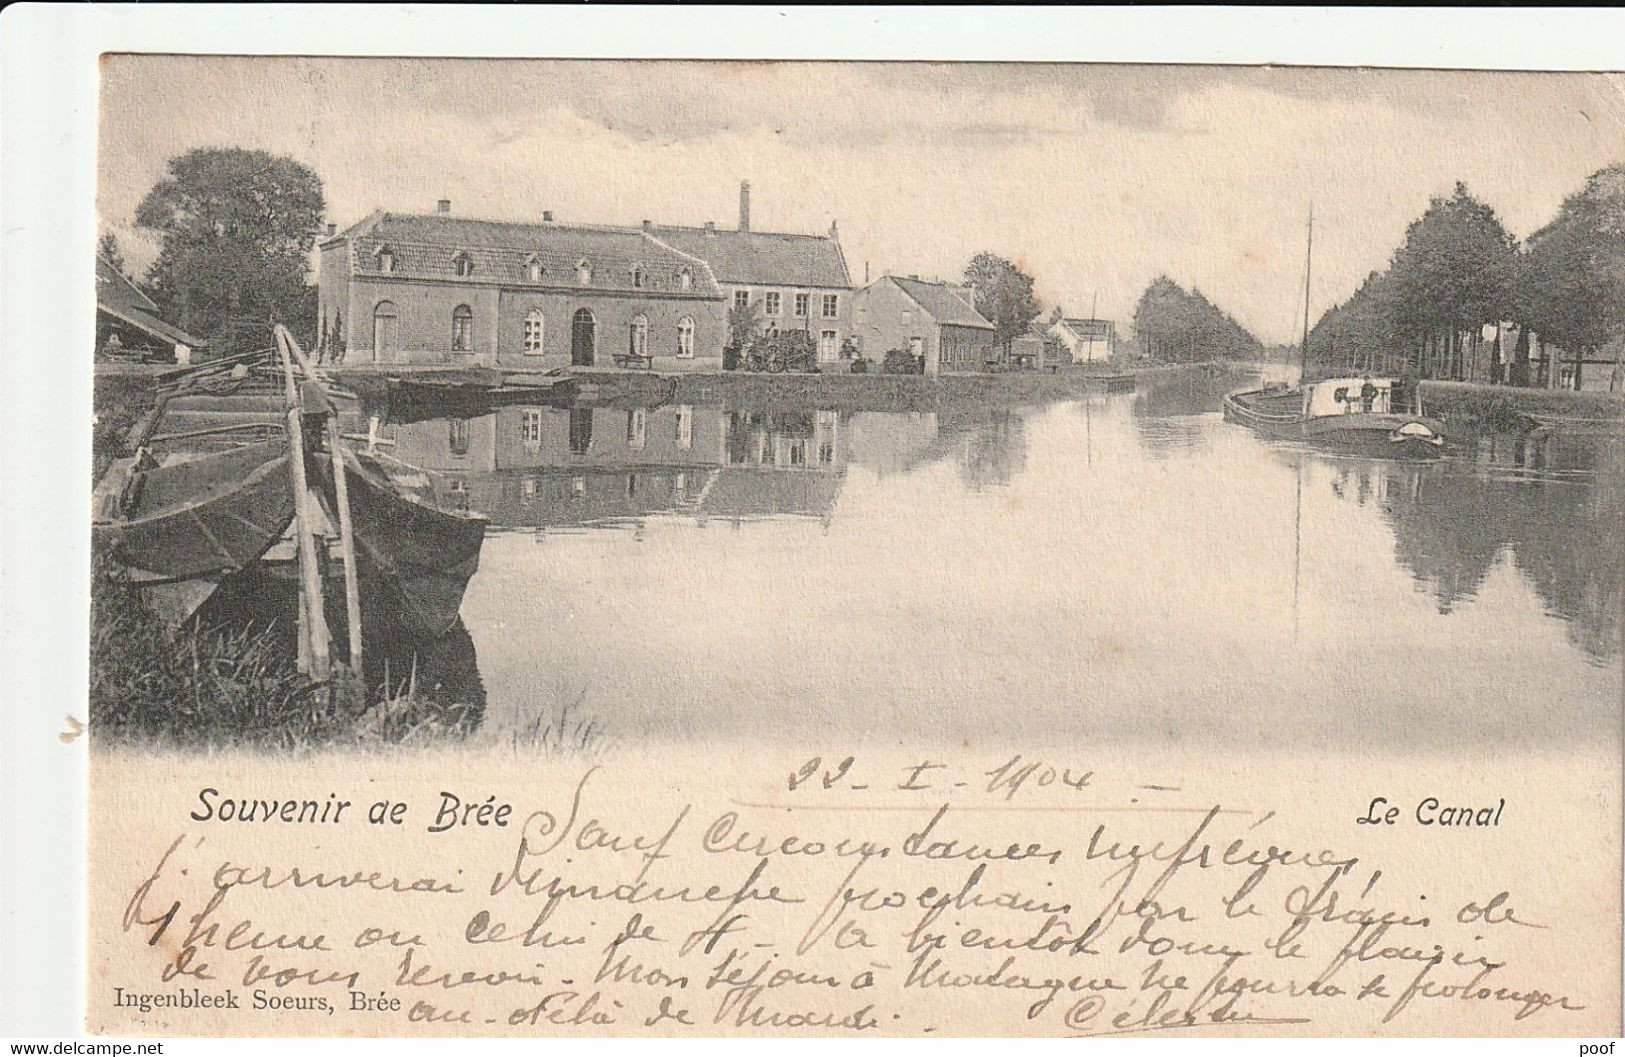 22 - I - 1904 -
Souvenir de Brée
Le Canal
Sauf circonstances imprévues,
j'arriverai Dimanche prochain par le train de
1 heure ou celui de 4 - à bientôt donc le plaisir
de vous revoir - Mon séjour à Matagne ne pourra se prolonger
au-delà de Mardi. Célestin
Ingenbleek Soeurs, Brée
delcampe.net
poof